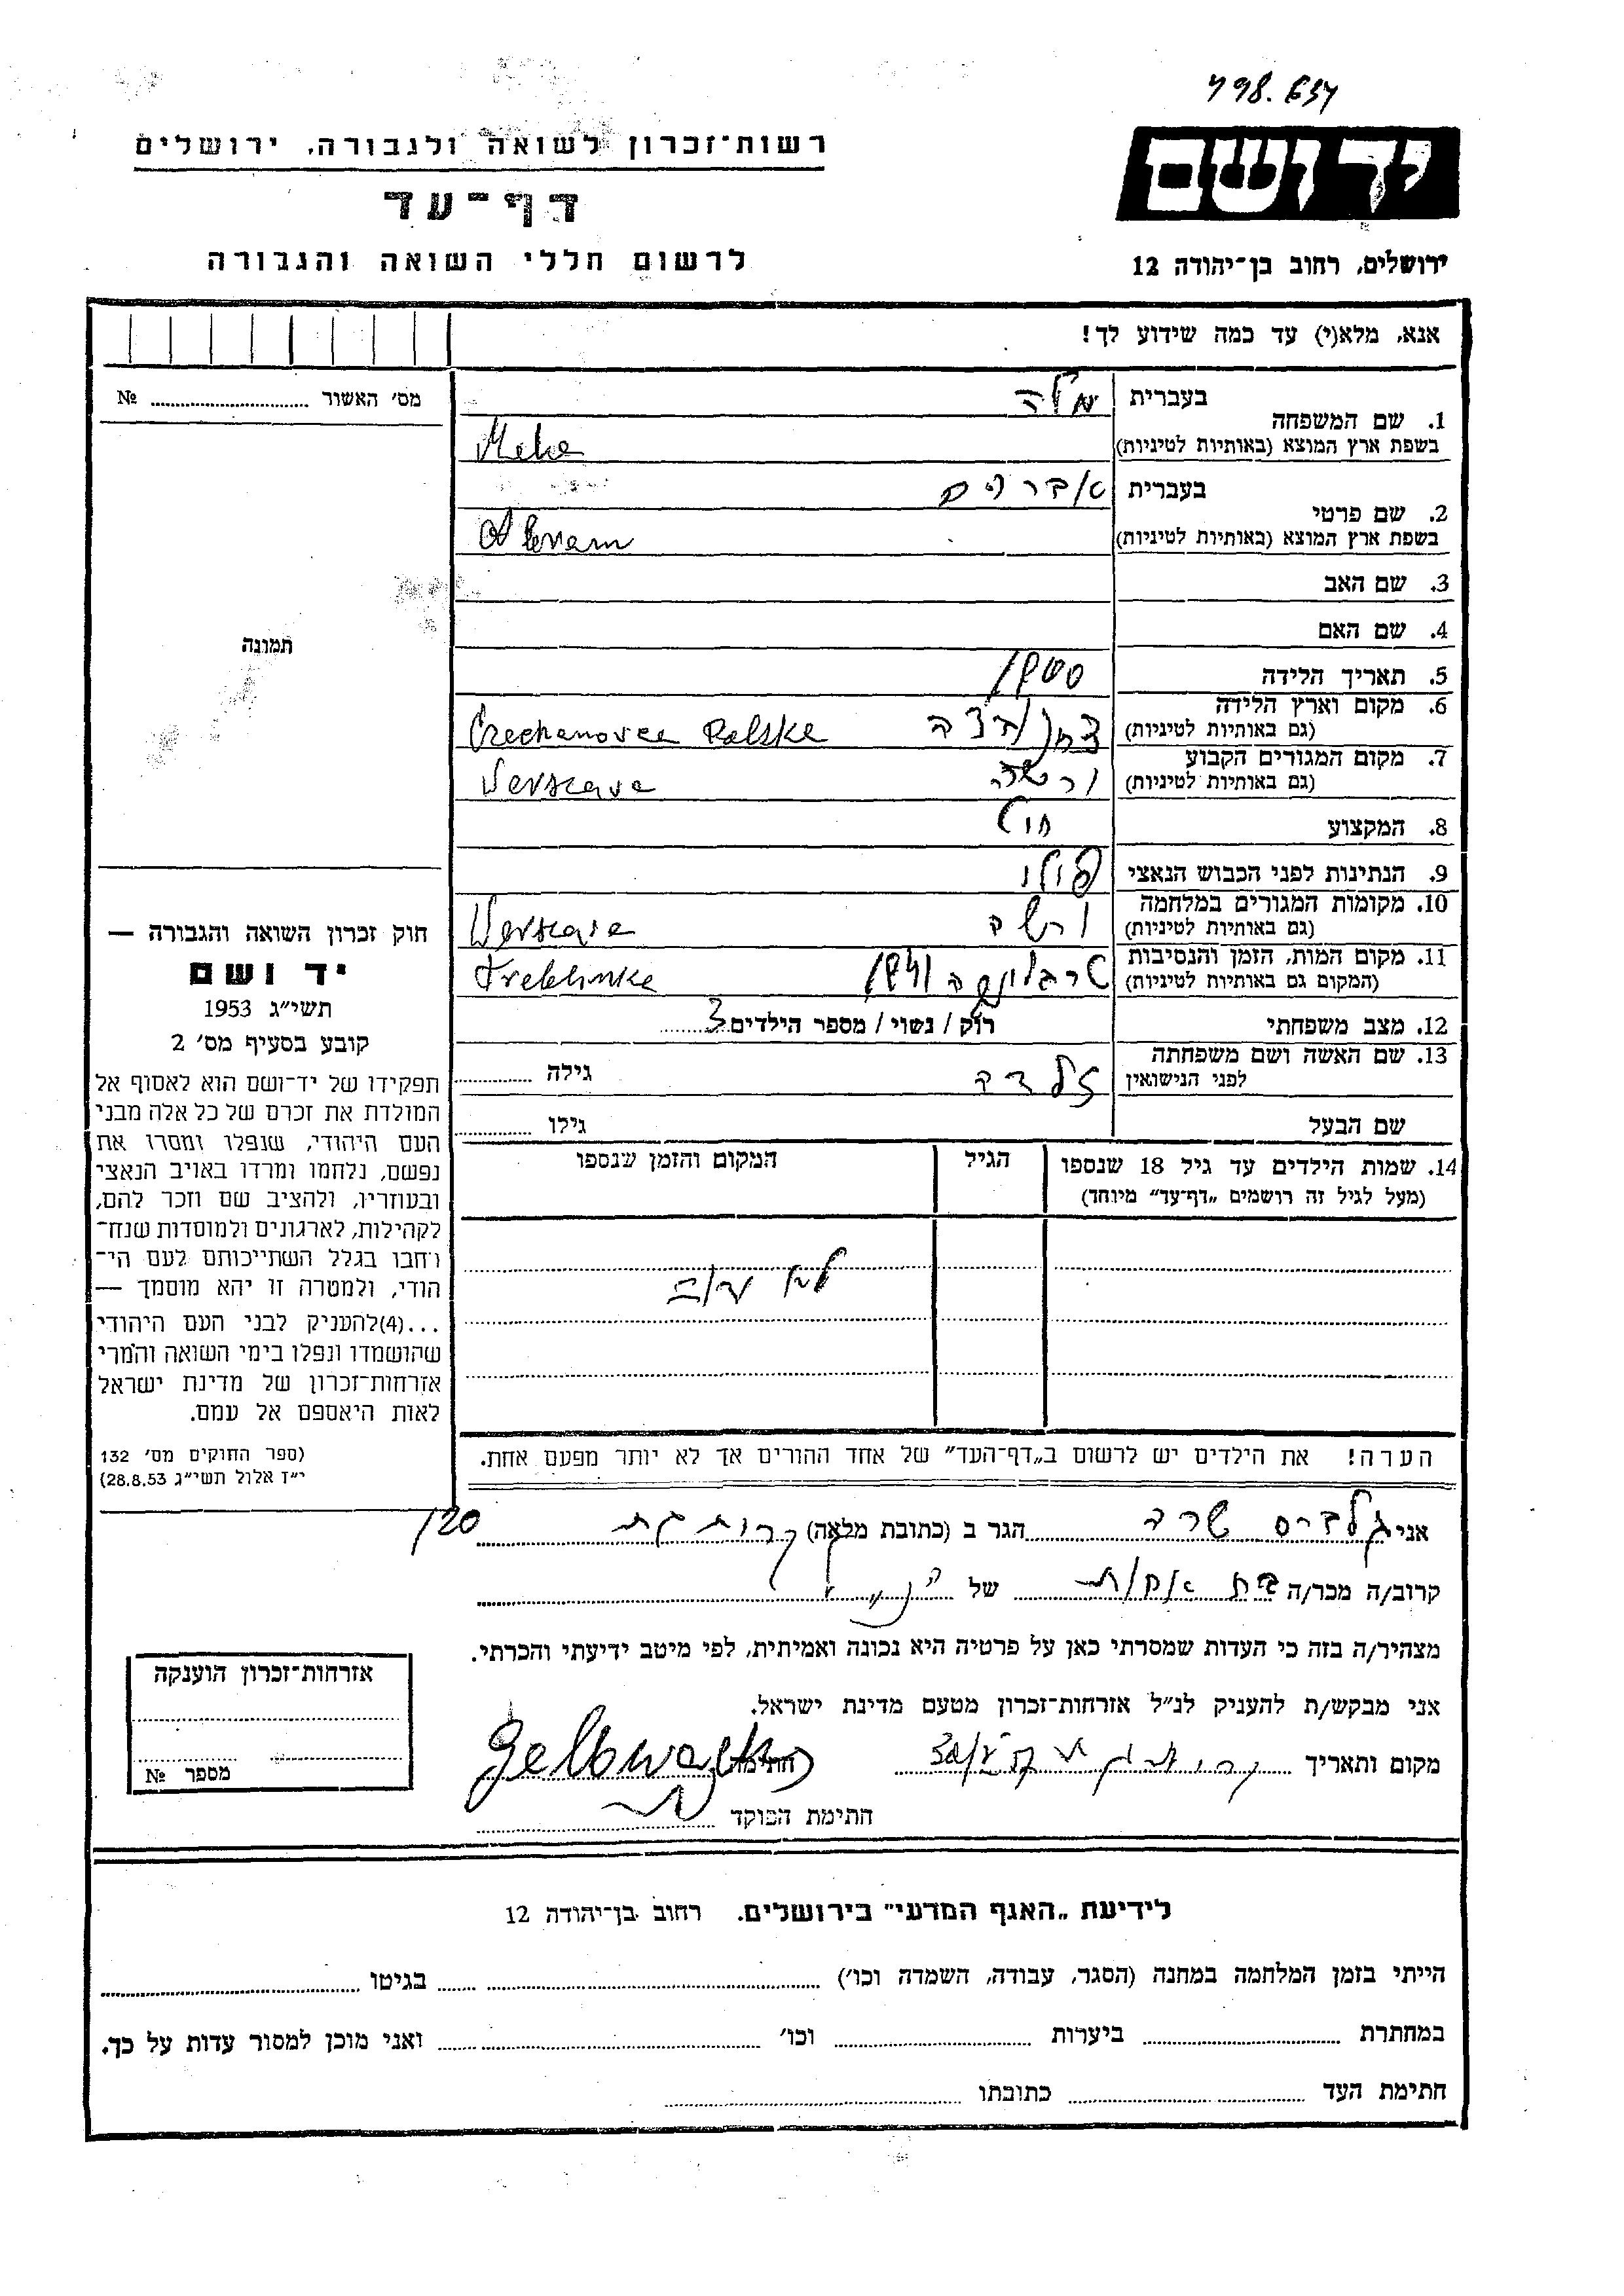 498.634
רשות־זכרון לשואה ולגבורה, ירושלים
יד ושם
דף־עד
לרשום חללי השואה והגבורה
ירושלים, רחוב בן־יהודה 12
אנא, מלא(י) עד כמה שידוע לך!
מס׳ האשור № ..........
1. שם המשפחה
בעברית
בשפת ארץ המוצא (באותיות לטיניות)
2. שם פרטי
בעברית אברהם
בשפת ארץ המוצא (באותיות לטיניות)
3. שם האב
4. שם האם
5. תאריך הלידה 1900
6. מקום וארץ הלידה
(גם באותיות לטיניות) Polske
7. מקום המגורים הקבוע ורשה
(גם באותיות לטיניות)
8. המקצוע
9. הנתינות לפני הכבוש הנאצי
10. מקומות המגורים במלחמה ורשה
(גם באותיות לטיניות)
11. מקום המות, הזמן והנסיבות טרבלינקה 1941
(המקום גם באותיות לטיניות) Treblinke
12. מצב משפחתי רוק / נשוי / מספר הילדים 3
13. שם האשה ושם משפחתה
לפני הנישואין זלדה גילה ..........
שם הבעל גילו ..........
תמונה
14. שמות הילדים עד גיל 18 שנספו
(מעל לגיל זה רושמים „דף־עד” מיוחד)
הגיל
המקום והזמן שנספו
לא
הערה! את הילדים יש לרשום ב„דף־העד” של אחד ההורים אך לא יותר מפעם אחת.
חוק זכרון השואה והגבורה —
יד ושם
תשי״ג 1953
קובע בסעיף מס׳ 2
תפקידו של יד־ושם הוא לאסוף אל
המולדת את זכרם של כל אלה מבני
העם היהודי, שנפלו ומסרו את
נפשם, נלחמו ומרדו באויב הנאצי
ובעוזריו, ולהציב שם וזכר להם,
לקהילות, לארגונים ולמוסדות שנח־
רחבו בגלל השתייכותם לעם הי־
הודי, ולמטרה זו יהא מוסמך —
...(4)להעניק לבני העם היהודי
שהושמדו ונפלו בימי השואה והמרי
אזרחות־זכרון של מדינת ישראל
לאות היאספם אל עמם.
(ספר החוקים מס׳ 132
י״ז אלול תשי״ג 28.8.53)
אני שרה הגר ב (כתובת מלאה) קרית גת 120
קרוב/ה מכר/ה בת אחות של
מצהיר/ה בזה כי העדות שמסרתי כאן על פרטיה היא נכונה ואמיתית, לפי מיטב ידיעתי והכרתי.
אני מבקש/ת להעניק לנ״ל אזרחות־זכרון מטעם מדינת ישראל.
מקום ותאריך קרית גת חתימה
חתימת הפוקד
אזרחות־זכרון הוענקה
מספר №
לידיעת „האגף המדעי” בירושלים. רחוב בן־יהודה 12
הייתי בזמן המלחמה במחנה (הסגר, עבודה, השמדה וכו׳) .......... בגיטו ..........
במחתרת .......... ביערות .......... וכו׳ .......... ואני מוכן למסור עדות על כך.
חתימת העד .......... כתובתו ..........